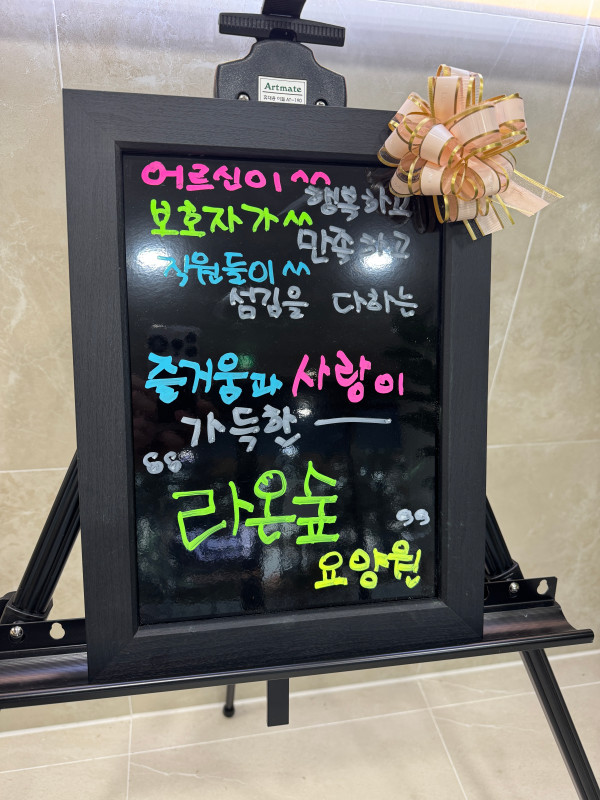 Artmate
어르신이 ^^ 행복하고
보호자가 ^^ 만족하고
직원들이 ^^
섬김을 다하는
즐거움과 사랑이
가득한 —
“
라온숲
”
요양원